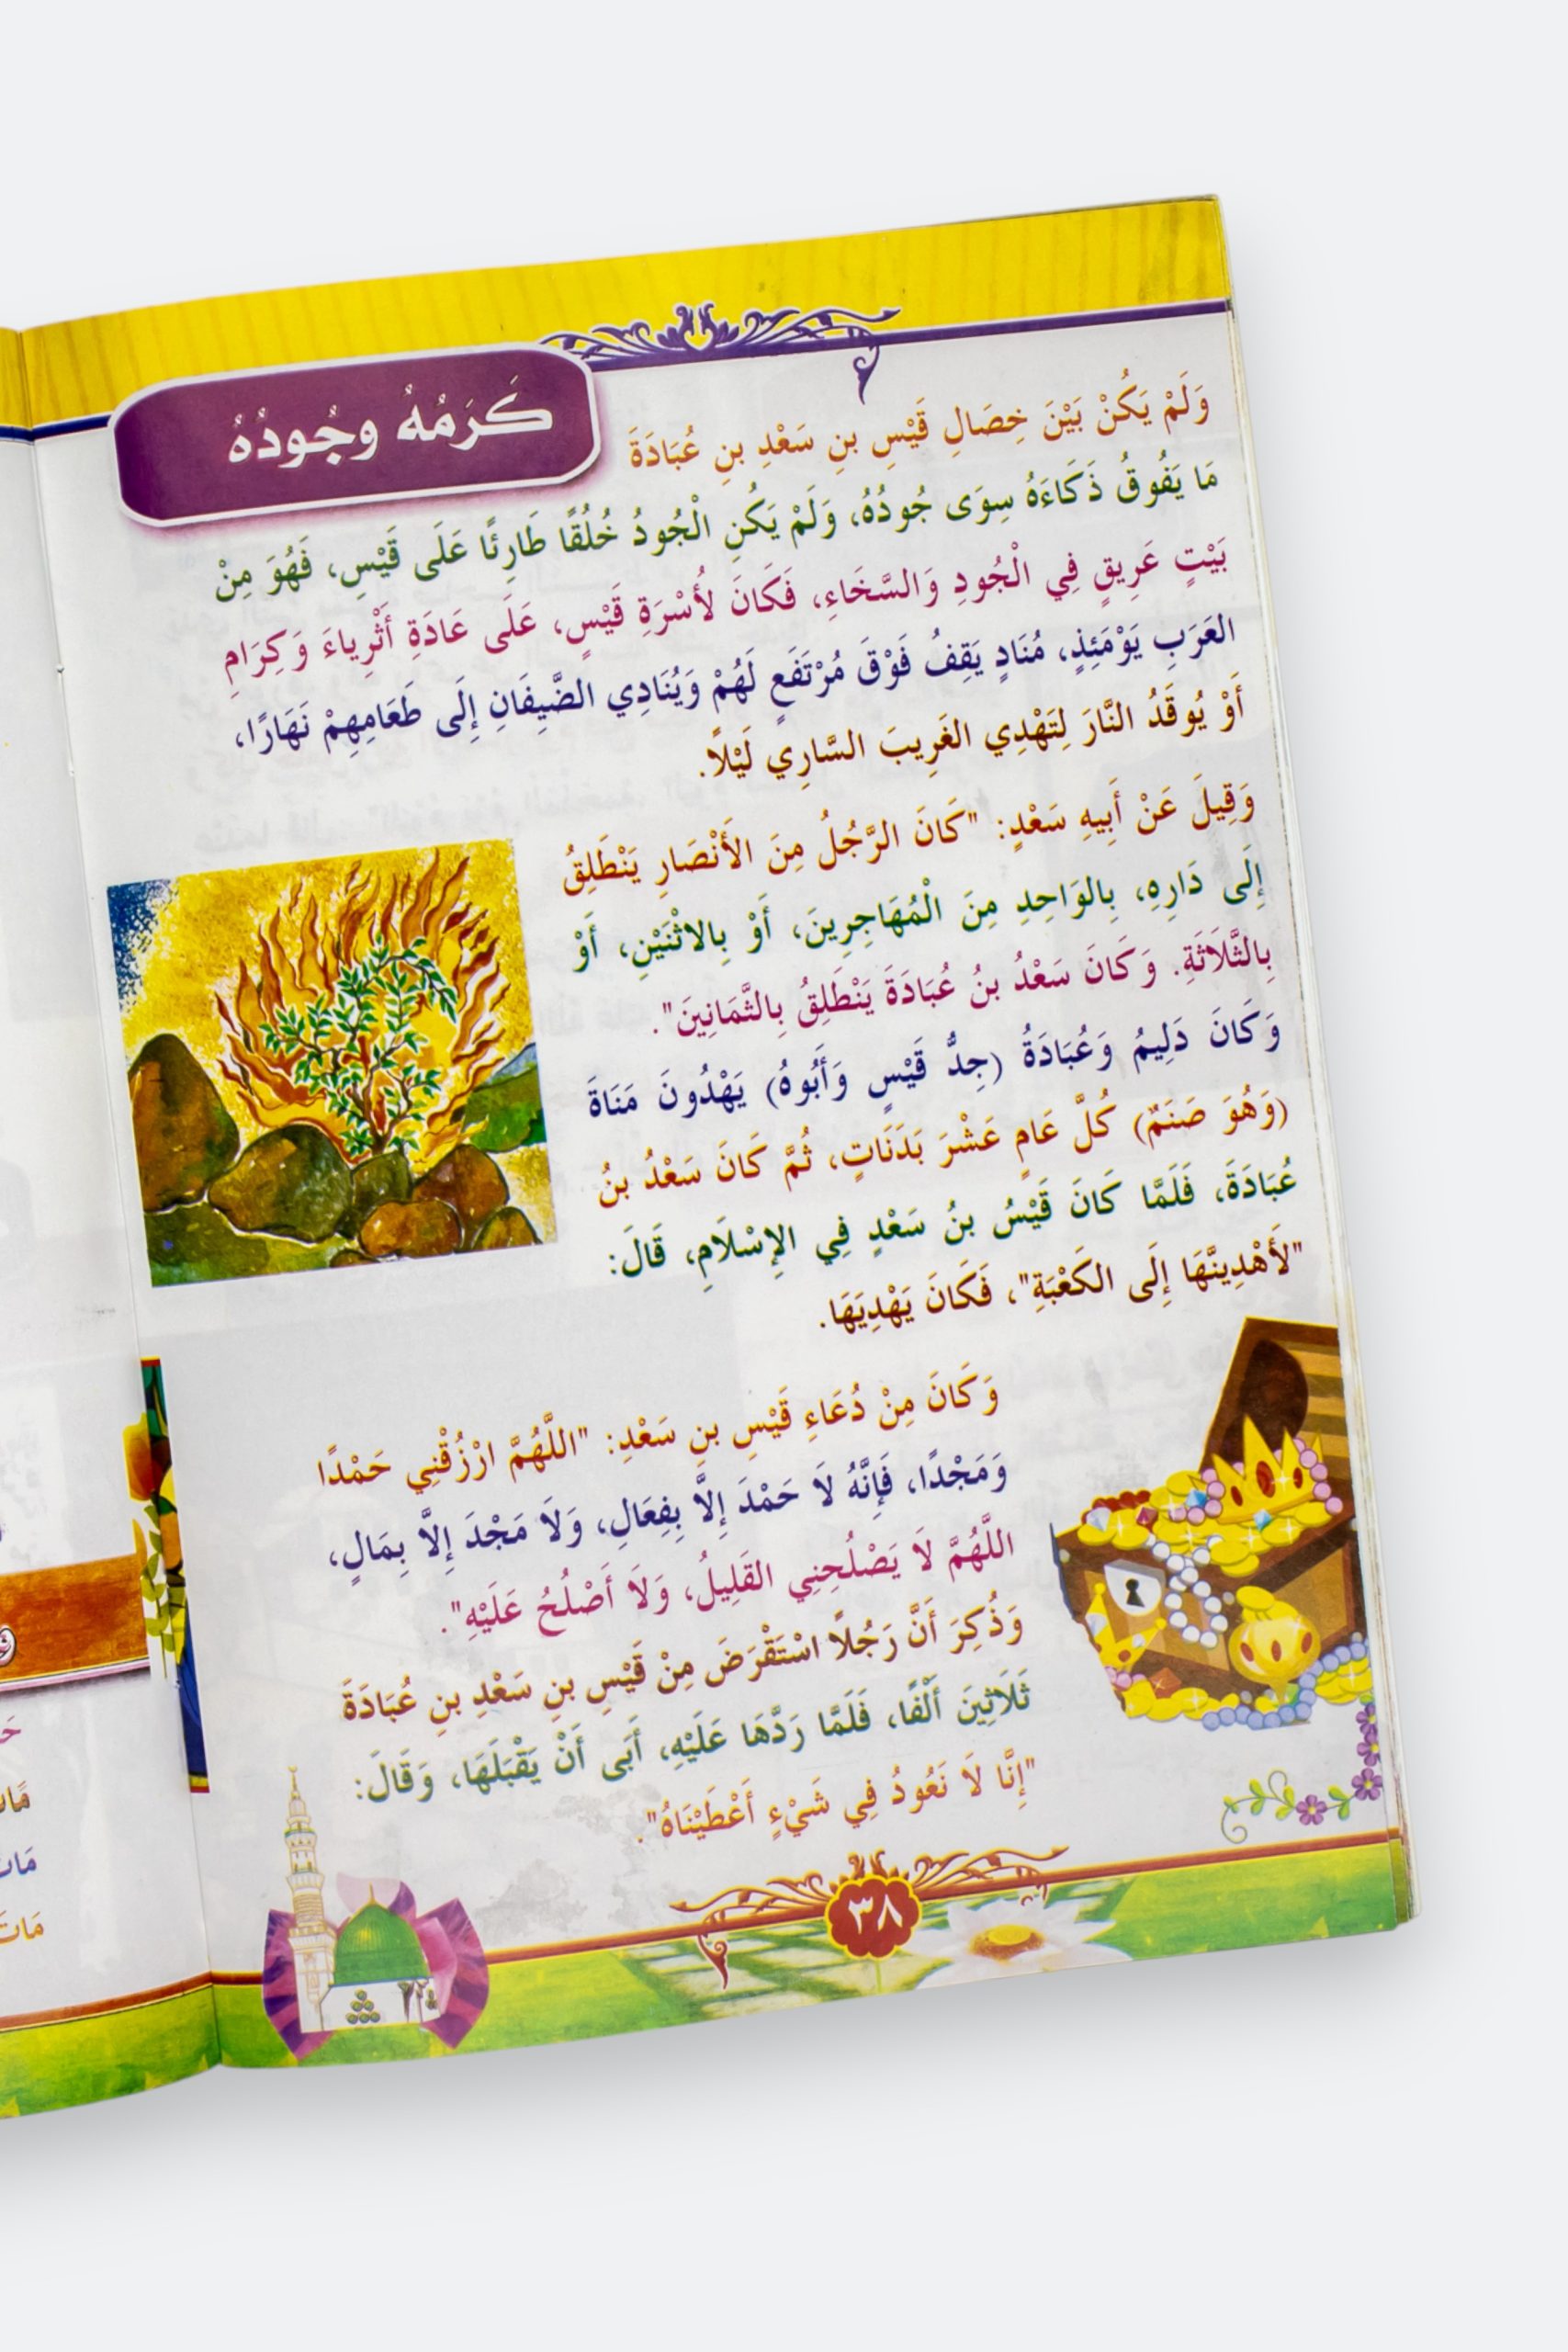 كَرَمُهُ وجُودُهُ
وَلَمْ يَكُنْ بَيْنَ خِصَالِ قَيْسِ بنِ سَعْدِ بنِ عُبَادَةَ
مَا يَفُوقُ ذَكَاءَهُ سِوَى جُودُهُ، وَلَمْ يَكُنِ الْجُودُ خُلُقًا طَارِئًا عَلَى قَيْسِ، فَهُوَ مِنْ
بَيْتٍ عَرِيقٍ فِي الْجُودِ وَالسَّخَاءِ، فَكَانَ لأُسْرَةِ قَيْسٍ، عَلَى عَادَةِ أَثْرِياءَ وَكِرَامِ
العَرَبِ يَوْمَئِذٍ، مُنَادٍ يَقِفُ فَوْقَ مُرْتَفَعٍ لَهُمْ وَيُنَادِي الضَّيِفَانِ إِلَى طَعَامِهِمْ نَهَارًا،
أَوْ يُوقَدُ النَّارَ لِتَهْدِي الغَرِيبَ السَّارِي لَيْلاً.
وَقِيلَ عَنْ أَبِيهِ سَعْدٍ: "كَانَ الرَّجُلُ مِنَ الأَنْصَارِ يَنْطَلِقُ
إِلَى دَارِهِ، بِالوَاحِدِ مِنَ الْمُهَاجِرِينَ، أَوْ بِالاثْنَيْنِ، أَوْ
بِالثَّلَاثَةِ. وَكَانَ سَعْدُ بنُ عُبَادَةَ يَنْطَلِقُ بِالثَّمَانِينَ".
وَكَانَ دَلِيمُ وَعُبَادَةُ (جِدُّ قَيْسٍ وَأَبُوهُ) يَهْدُونَ مَنَاةَ
(وَهُوَ صَنَمٌ) كُلَّ عَامٍ عَشْرَ بَدَنَاتٍ، ثُمَّ كَانَ سَعْدُ بنُ
عُبَادَةَ، فَلَمَّا كَانَ قَيْسُ بنُ سَعْدٍ فِي الإِسْلَامِ، قَالَ:
"لَأَهْدِينَّهَا إِلَى الكَعْبَةِ"، فَكَانَ يَهْدِيَهَا.
وَكَانَ مِنْ دُعَاءِ قَيْسِ بنِ سَعْدِ: "اللَّهُمَّ ارْزُقْنِي حَمْدًا
وَمَجْدًا، فَإِنَّهُ لَا حَمْدَ إِلاَّ بِفِعَالِ، وَلَا مَجْدَ إِلاَّ بِمَالٍ،
اللَّهُمَّ لَا يَصْلُحِنِي القَلِيلُ، وَلَا أَصْلُحُ عَلَيْهِ".
وَذُكِرَ أَنَّ رَجُلاً اسْتَقْرَضَ مِنْ قَيْسِ بنِ سَعْدِ بنِ عُبَادَةَ
ثَلَاثِينَ أَلْفًا، فَلَمَّا رَدَّهَا عَلَيْهِ، أَبَى أَنْ يَقْبَلَهَا، وَقَالَ:
"إِنَّا لَا نَعُودُ فِي شَيْءٍ أَعْطَيْنَاهُ".
٣٨